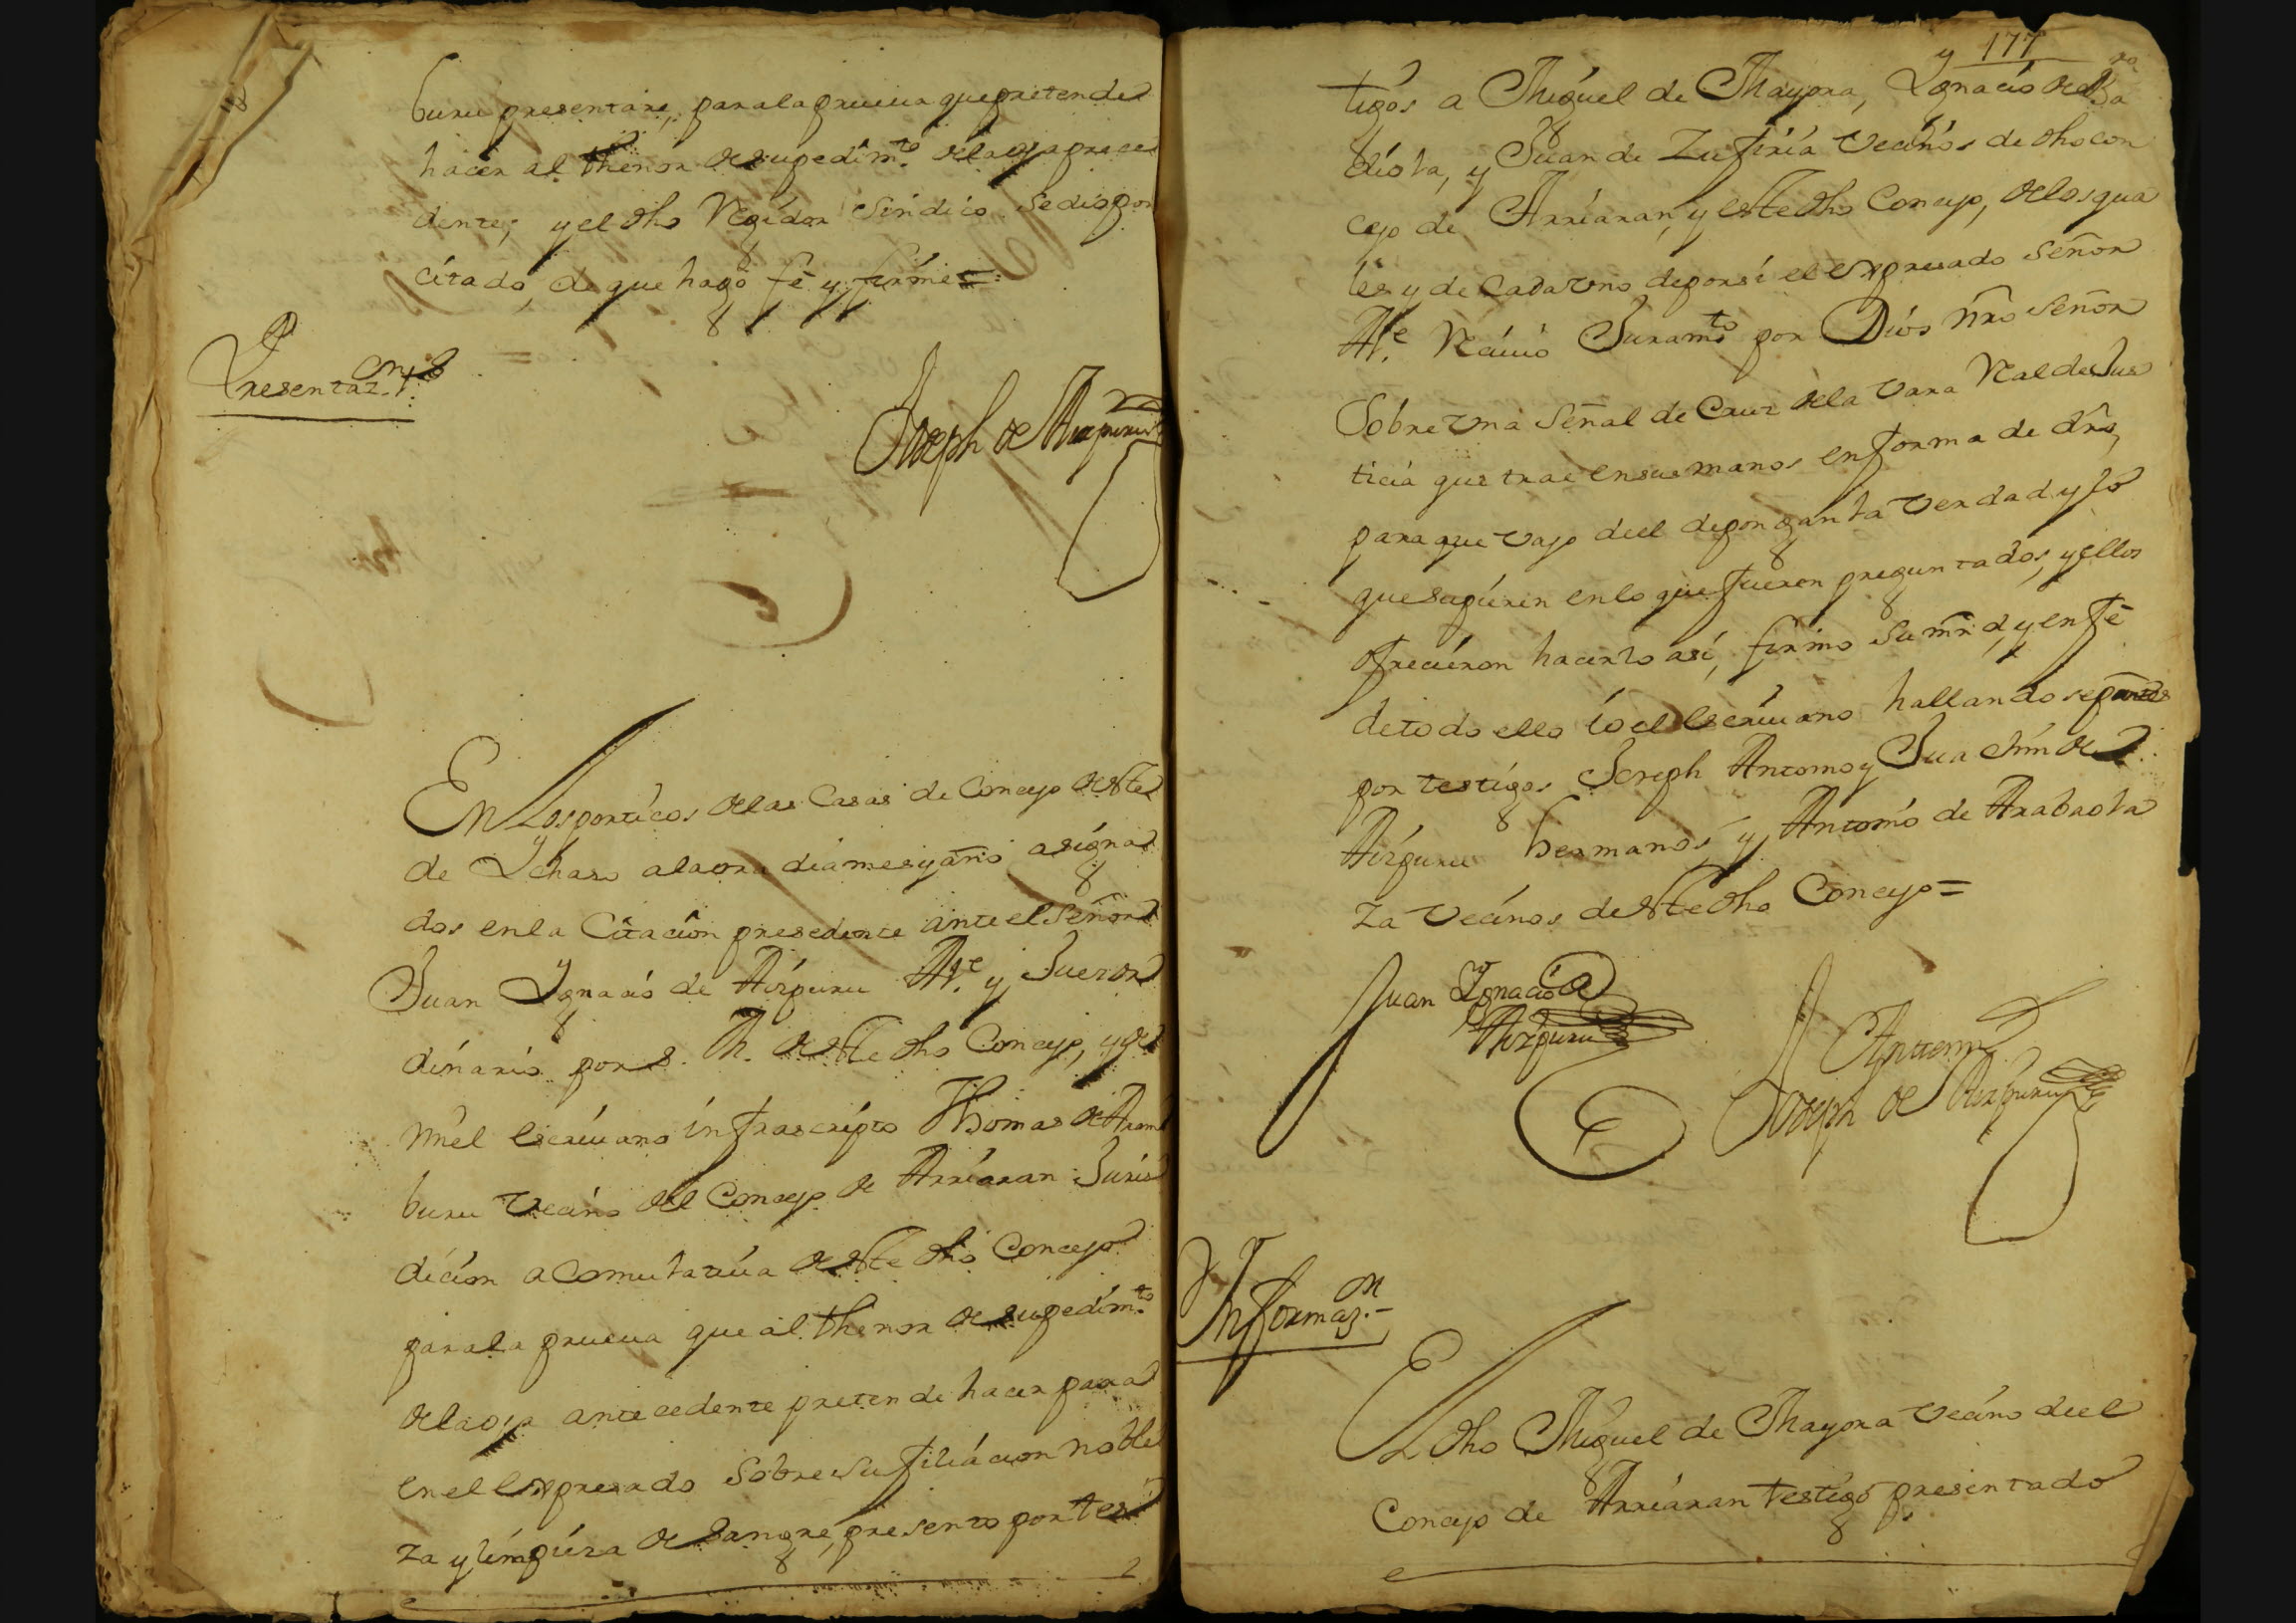 buru presentare, para la prueua que pretende
hacer al thenor de su pedimto de la oja prece
dente; y el dho Regidor Sindico se dio por
citado, de que hago fé y firmé =
Joseph de Aizpuru
Presentazon
En Los porticos de las Casas de Concejo de este
de Ychaso a la ora dia mes y año asigna
dos en la Citacion presedente ante el Señor
Juan Ygnacio de Aizpuru Alce y Juez or
dinario por S. M. de este dho Concejo, y de
mi el escriuano infrascripto Thomas de Aram
buru vecino del Concejo de Arriaran Juris
dicion acomulatiua de este dho Concejo
para la prueua que al thenor de su pedimto
de la oja antecedente pretende hacer para
en el expresado sobre su filiacion noble
za y limpieza de sangre, presento por tes
177
tigos a Miguel de Mayora, Ygnacio de
diola, y Juan de Zufiria vecinos de dho con
cejo de Arriaran, y este dho Concejo, de los qua
les y de cada vno de por si el expresado Señor
Alce Reciuio Juramto por Dios nro Señor
Sobre vna Señal de Cruz de la vara Real de Jus
ticia que trae en sus manos en forma de dro,
para que vajo de el depongan la verdad y lo
que supieren en lo que fueren preguntados, y ellos
ofrecieron hacerlo asi, firmo su mrd, y en fé
de todo ello io el escriuano hallandose presentes
por testigos Joseph Antonio y Juachin de
Aizpuru hermanos, y Antonio de Arabaola
za vecinos de este dho Concejo =
Juan Ygnacio de
Aizpuru
Ante mi
Joseph de Aizpuru
Ynformazon
El dho Miguel de Mayora vecino de el
Concejo de Arriaran testigo presentado